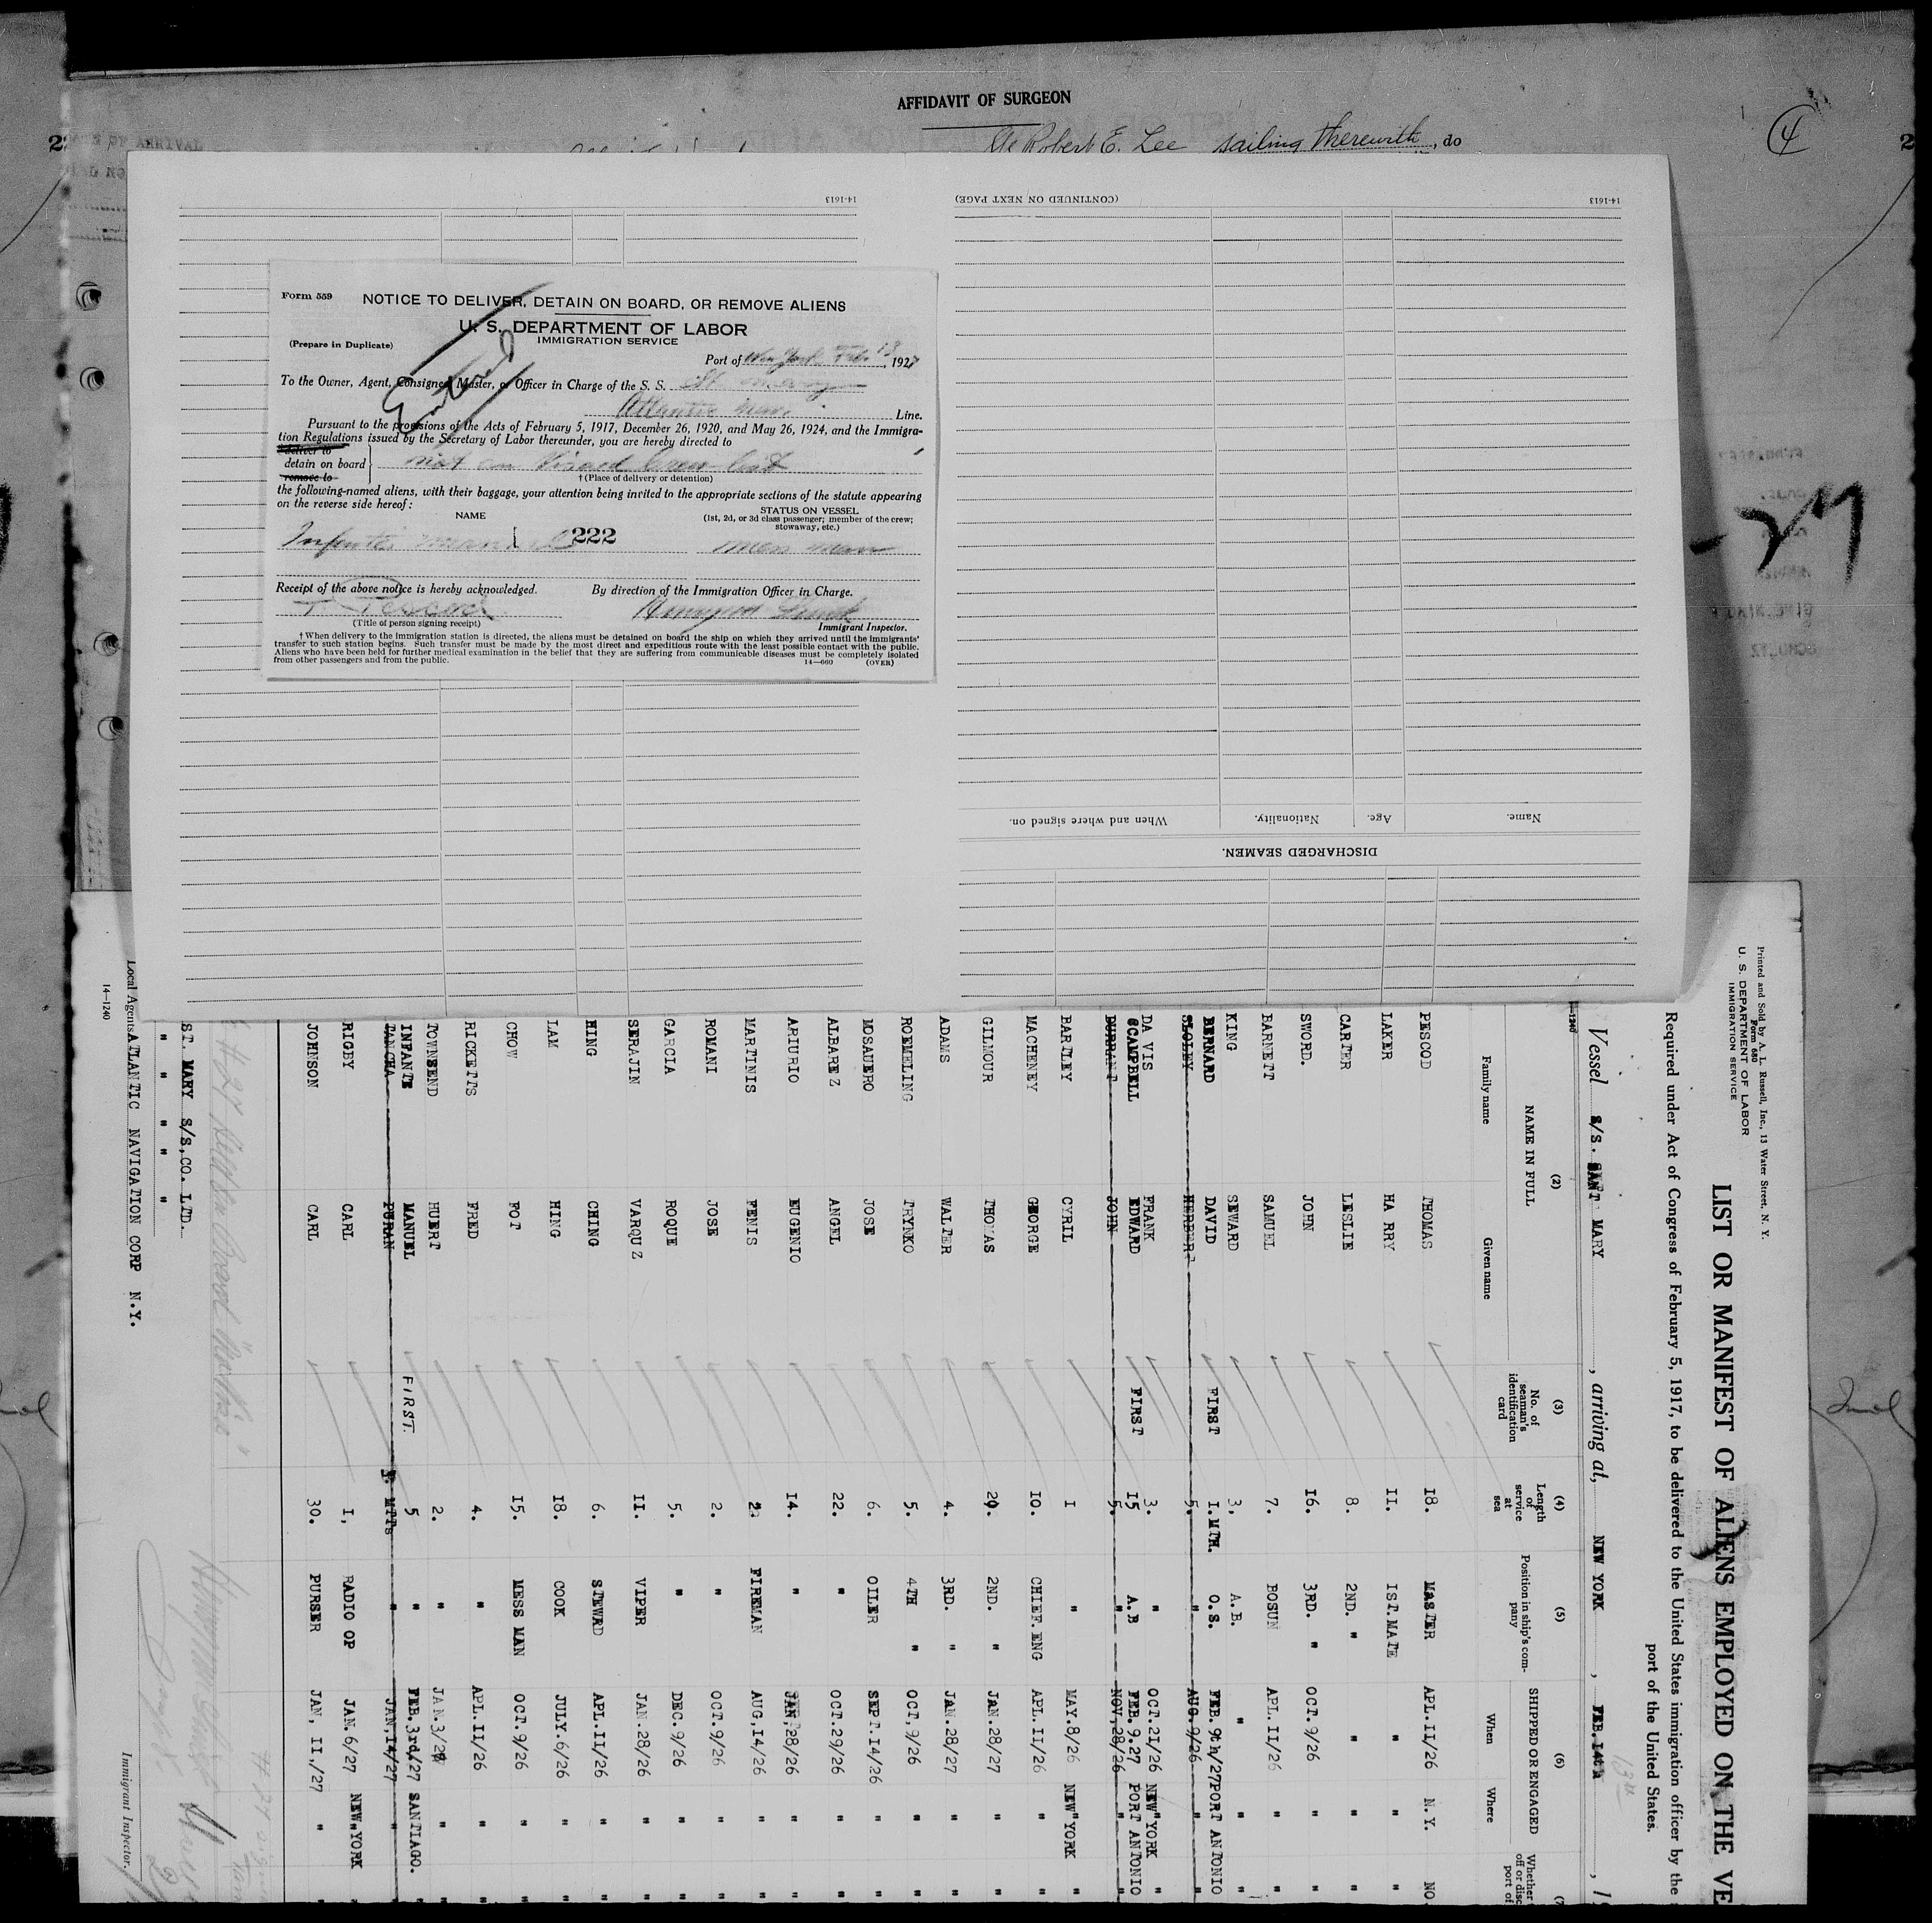 AFFIDAVIT OF SURGEON
Robert E. Lee sailing therewith, do
4
14-1613
(CONTINUED ON NEXT PAGE)
14-1613
Name.
Age.
Nationality.
When and where signed on.
DISCHARGED SEAMEN.
Form 559
NOTICE TO DELIVER, DETAIN ON BOARD, OR REMOVE ALIENS
U. S. DEPARTMENT OF LABOR
IMMIGRATION SERVICE
(Prepare in Duplicate)
Port of New York Feb. 13, 1927
To the Owner, Agent, Consignee, Master, or Officer in Charge of the S. S. St. Mary
Atlantic Nav. Line.
Pursuant to the provisions of the Acts of February 5, 1917, December 26, 1920, and May 26, 1924, and the Immigra-
tion Regulations issued by the Secretary of Labor thereunder, you are hereby directed to
deliver to
detain on board
remove to
not on visaed crew list
†(Place of delivery or detention)
the following-named aliens, with their baggage, your attention being invited to the appropriate sections of the statute appearing
on the reverse side hereof:
NAME
STATUS ON VESSEL
(1st, 2d, or 3d class passenger; member of the crew;
stowaway, etc.)
Infante Manuel 222 mess man
Receipt of the above notice is hereby acknowledged.
By direction of the Immigration Officer in Charge.
T Pescod
(Title of person signing receipt)
Immigrant Inspector.
† When delivery to the immigration station is directed, the aliens must be detained on board the ship on which they arrived until the immigrants'
transfer to such station begins. Such transfer must be made by the most direct and expeditious route with the least possible contact with the public.
Aliens who have been held for further medical examination in the belief that they are suffering from communicable diseases must be completely isolated
from other passengers and from the public.
14—660 (OVER)
- 27
Printed and Sold by A. L. Russell, Inc., 13 Water Street, N. Y.
Form 680
U. S. DEPARTMENT OF LABOR
IMMIGRATION SERVICE
LIST OR MANIFEST OF ALIENS EMPLOYED ON THE VE
Required under Act of Congress of February 5, 1917, to be delivered to the United States immigration officer by the
port of the United States.
Vessel S/S. SANT MARY, arriving at, NEW YORK, FEB. 14th, 19
13th
(2) NAME IN FULL
Family name
Given name
(3) No. of seaman's identification card
(4) Length of service at sea
(5) Position in ship's company
(6) SHIPPED OR ENGAGED
When
Where
PESCOD THOMAS 18. MASTER APL.11/26 N.Y. NO
LAKER HA RRY II. IST.MATE " " "
CARTER LESLIE 8. 2ND. " " " "
SWORD. JOHN 16. 3RD. " OCT.9/26 " "
BARNETT SAMUEL 7. BOSUN APL.II/26 " "
KING SEWARD 3, A.B. " " "
BERNARD DAVID FIRST I.MTH. O.S. FEB.9th/27 PORT ANTONIO
SLOLEY HERBERT 5. " AUG.9/26 " "
DA VIS FRANK 3. " OCT.21/26 NEW YORK "
SCAMPBELL EDWARD FIRST 15 A.B FEB.9.27 PORT ANTONIO
DURRANT JOHN 5. " NOV.28/26 " "
BARTLEY CYRIL I " MAY.8/26 NEW YORK "
MACHENEY GEORGE IO. CHIEF.ENG APL.II/26 " "
GILMOUR THOMAS 20. 2ND. " JAN.28/27 " "
ADAMS WALTER 4. 3RD. " JAN.28/27 " "
ROEMELING TRYNKO 5. 4TH " OCT,9/26 " "
MOSAUERO JOSE 6. OILER SEPT.14/26 " "
ALBAREZ ANGEL 22. " OCT.29/26 " "
APIURIO EUGENIO 14. " JAN,28/26 " "
MARTINIS FENIS FIREMAN AUG,14/26 " "
ROMANI JOSE 2. " OCT.9/26 " "
GARCIA ROQUE 5. " DEC.9/26 " "
SERAJIN VARQUZ II. VIPER JAN.28/26 " "
HING CHING 6. STEWRD APL.II/26 " "
LAM HING 18. COOK JULY.6/26 " "
CHOW FOT 15. MESS MAN OCT.9/26 " "
RICKETTS FRED 4. " APL.II/26 " "
TOWNSEND HUERT 2. " JAN.3/27 " "
INFANTE MANUEL FIRST. 5 " FEB.3rd/27 SANTIAGO. "
TANCHA PURAN MTTs " JAN,14/27 " "
RIGBY CARL I, RADIO OP JAN.6/27 NEW YORK
JOHNSON CARL 30. PURSER JAN,II,/27 " "
ST. MARY S/S,CO. LTD.
" " " " "
Local Agents ATLANTIC NAVIGATION CORP N.Y.
14—1240
Immigrant Inspector.